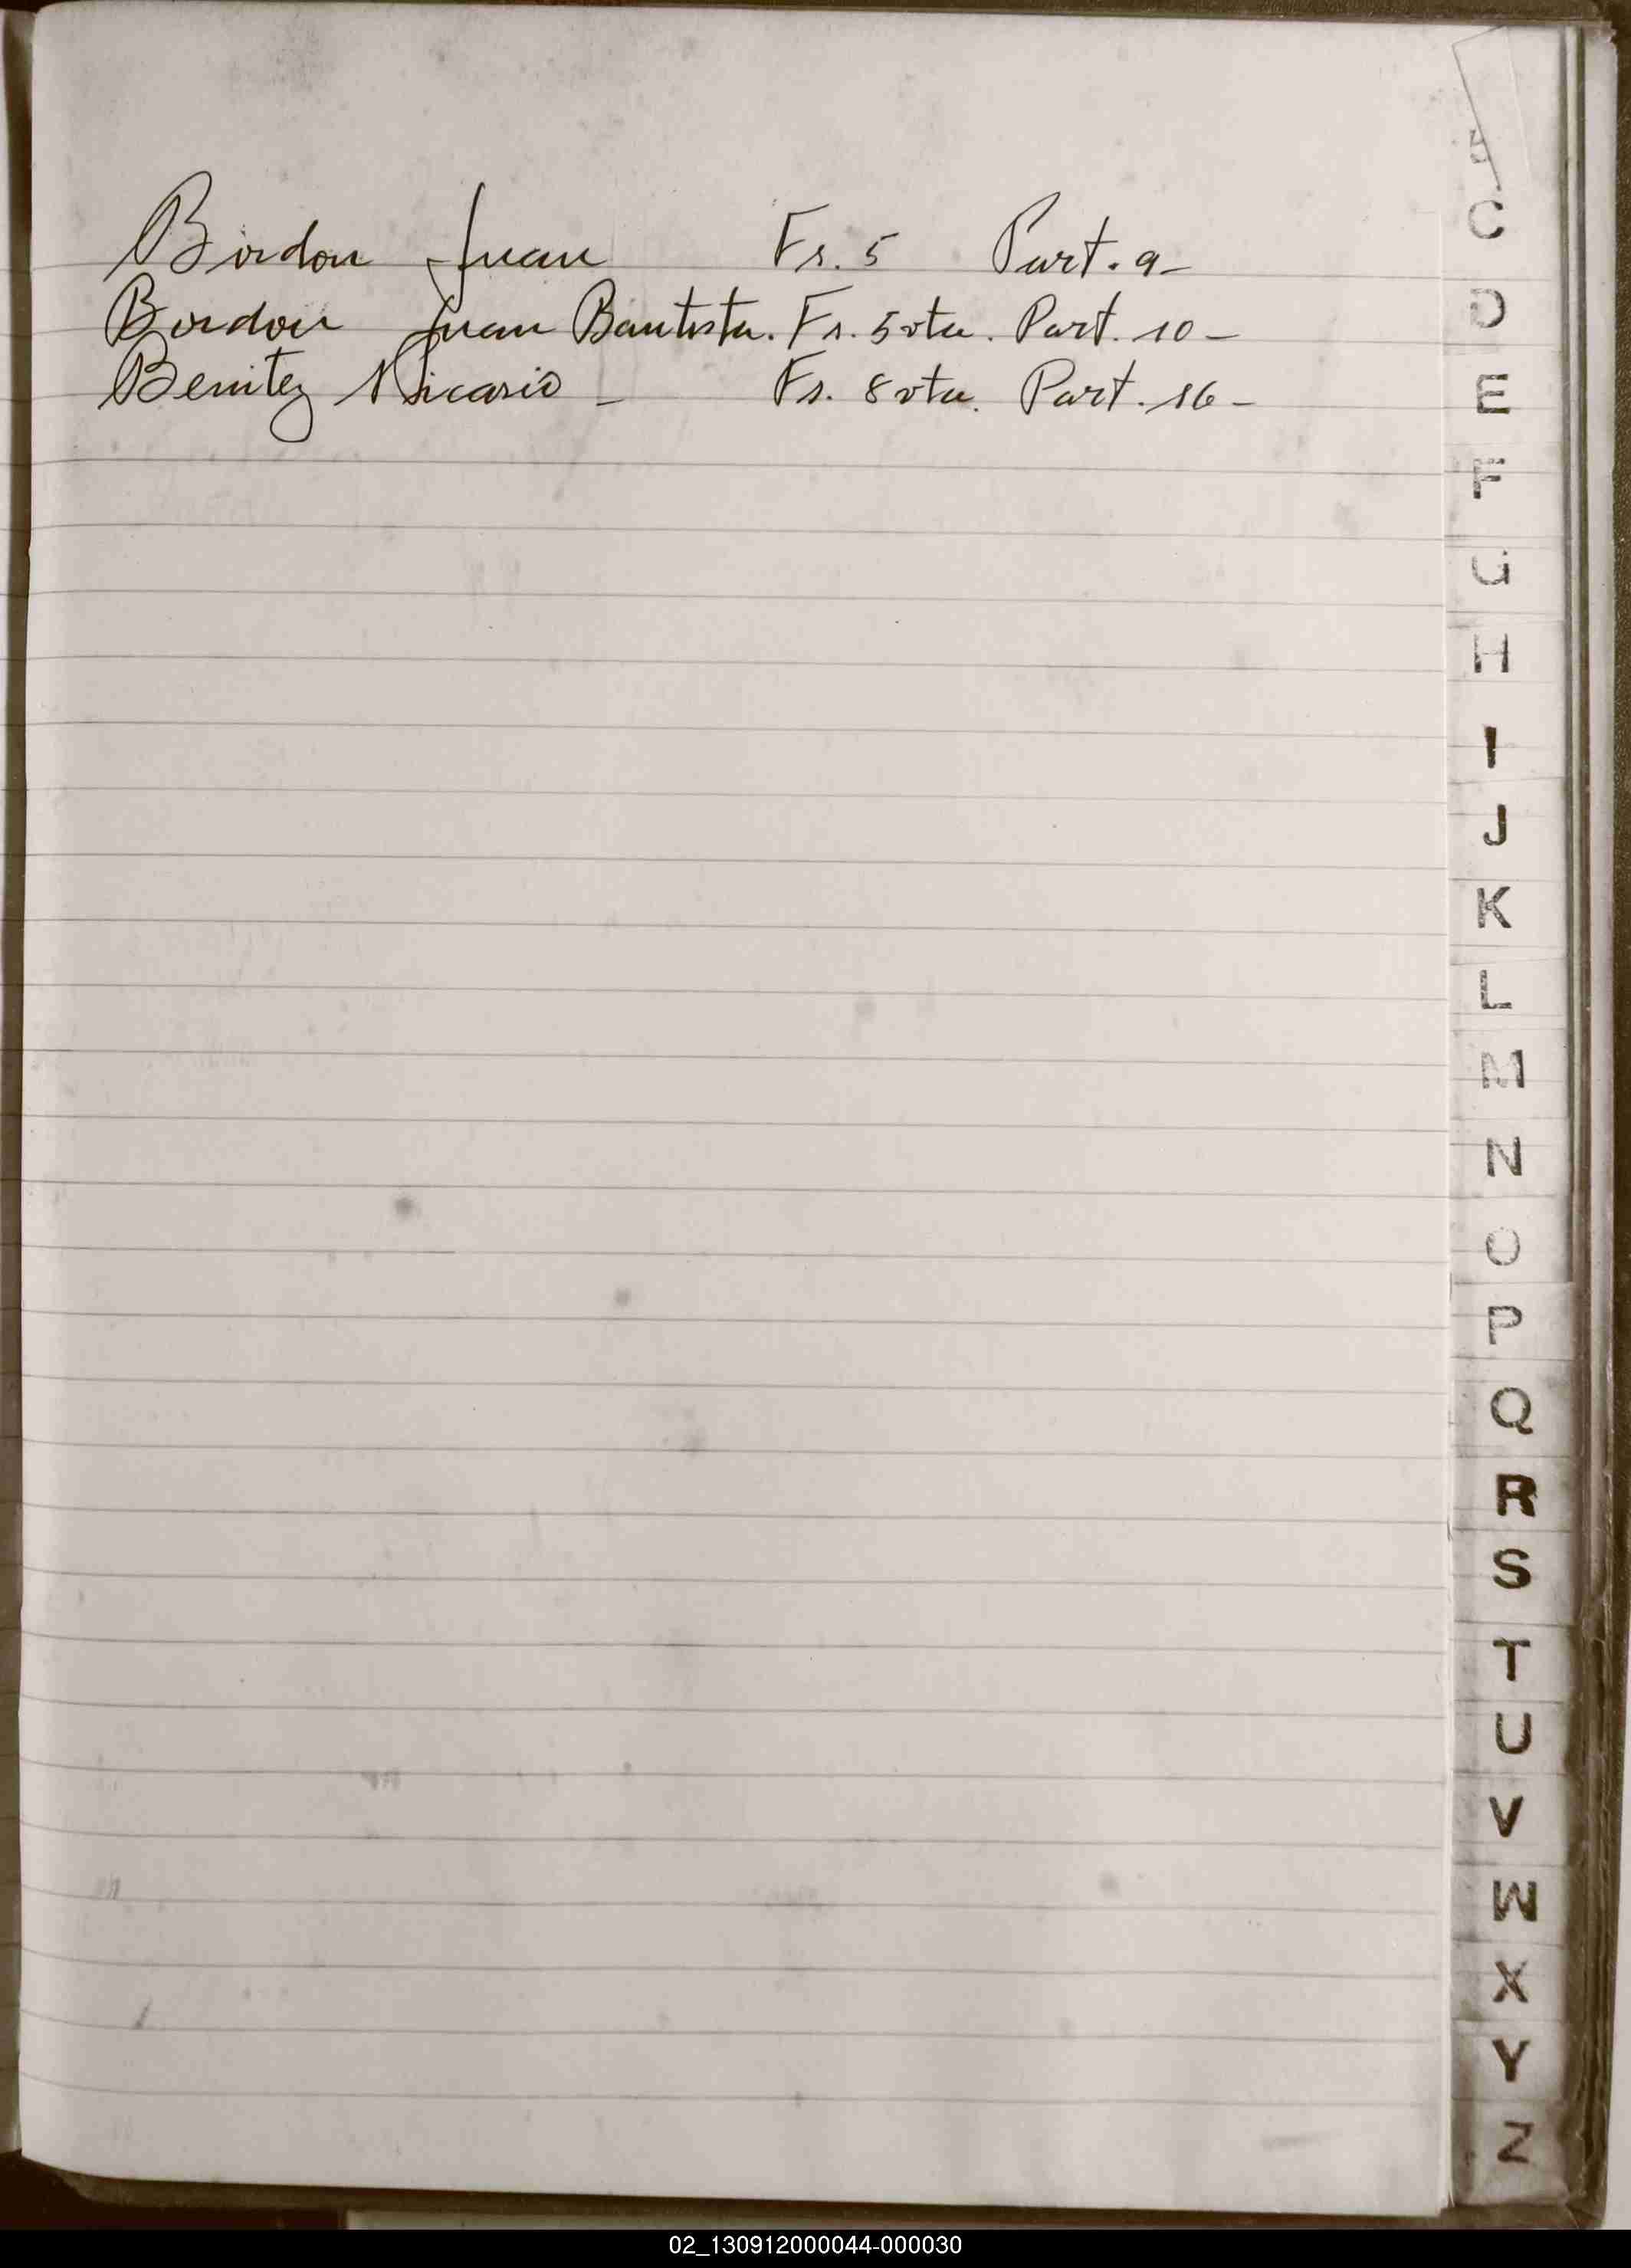 Bordon Juan Fs. 5 Part. 9-
Bordon Juan Bautista. Fs. 5 vta. Part. 10-
Benitez Nicasio - Fs. 8 vta. Part. 16-
B
C
D
E
F
G
H
I
J
K
L
M
N
O
P
Q
R
S
T
U
V
W
X
Y
Z
02_130912000044-000030